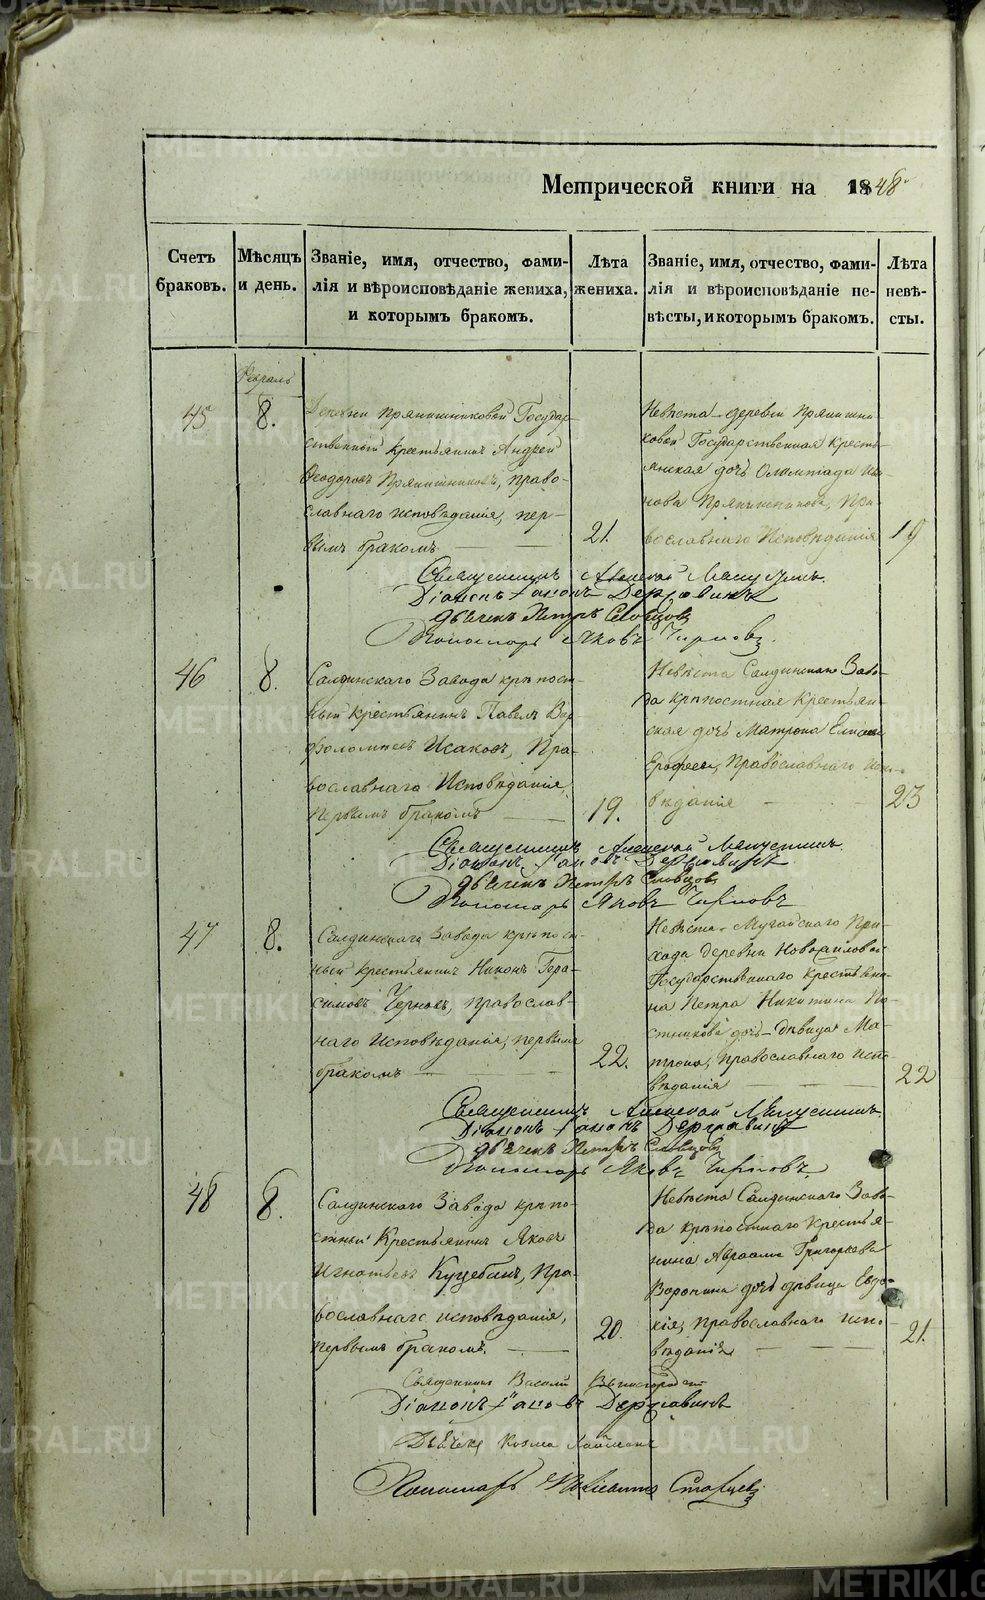 Метрической книги на 1848
Счетъ браковъ.
Мѣсяцъ и день.
Званіе, имя, отчество, фами-
лія и вѣроисповѣданіе жениха,
и которымъ бракомъ.
Лѣта жениха.
Званіе, имя, отчество, фами-
лія и вѣроисповѣданіе не-
вѣсты, и которымъ бракомъ.
Лѣта невѣ-
сты.
Февраль
45
8.
Деревни Прянишниковой Государ-
ственный крестьянинъ Андрей
Ѳеодоровъ Прянишниковъ, право-
славнаго исповѣданія, пер-
вымъ бракомъ
21.
Невѣста деревни Прянишни-
ковой Государственная Кресть-
янская дочь Олимпіада
Прянишникова, Пра-
вославнаго Исповѣданія
19
Священникъ Алексѣй
Діаконъ Державинъ
Дьячекъ Петръ Словцовъ
Пономарь Яковъ Чирковъ
46
8.
Салдинскаго Завода крѣпост-
ный крестьянинъ Павелъ Вар-
фоломѣевъ Исаковъ, Пра-
вославнаго Исповѣданія,
первымъ бракомъ
19.
Невѣста Салдинскаго Заво-
да крѣпостная Крестьян-
ская дочь Матрона
Православнаго Испо-
вѣданія
23
Священникъ Алексѣй
Діаконъ Державинъ
Дьячекъ Петръ Словцовъ
Пономарь Яковъ Чирковъ
47
8.
Салдинскаго Завода крѣпост-
ный крестьянинъ Никонъ Гера-
симовъ Черновъ, православ-
наго Исповѣданія, первымъ
бракомъ
22.
Невѣста Мугайскаго При-
хода деревни
Государственнаго крестьяни-
на Петра Никитина По-
стникова дочь дѣвица Ма-
трона, православнаго испо-
вѣданія
22
Священникъ Алексѣй
Діаконъ Державинъ
Дьячекъ Петръ Словцовъ
Пономарь Яковъ Чирковъ
48
8.
Салдинскаго Завода крѣпо-
стный Крестьянинъ Яковъ
Игнатьевъ Куцебинъ, Пра-
вославнаго исповѣданія,
первымъ бракомъ.
20.
Невѣста Салдинскаго Заво-
да крѣпостнаго Крестья-
нина Авраама Григорьева
Воронина дочь дѣвица Евдо-
кія, православнаго испо-
вѣданія
21.
Священникъ Василій
Діаконъ Державинъ
Дьячекъ Козма
Пономарь Старцевъ
METRIKI.GASO-URAL.RU